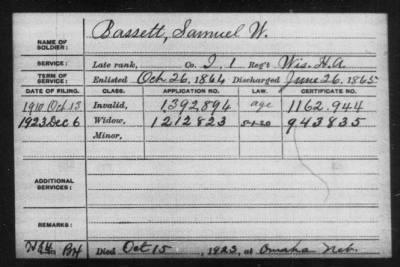 NAME OF SOLDIER: Bassett, Samuel W.
SERVICE: Late rank, Co. I, 1 Reg't Wis. H.A.
TERM OF SERVICE: Enlisted Oct. 26, 1864 Discharged June 26, 1865
DATE OF FILING. CLASS. APPLICATION NO. LAW. CERTIFICATE NO.
1910 Oct. 13 Invalid, 1,392,894 age 1162.944
1923 Dec 6 Widow, 1212823 5-1-20 943835
Minor,
ADDITIONAL SERVICES:
REMARKS:
Died Oct 15, 1923, at Omaha Neb.